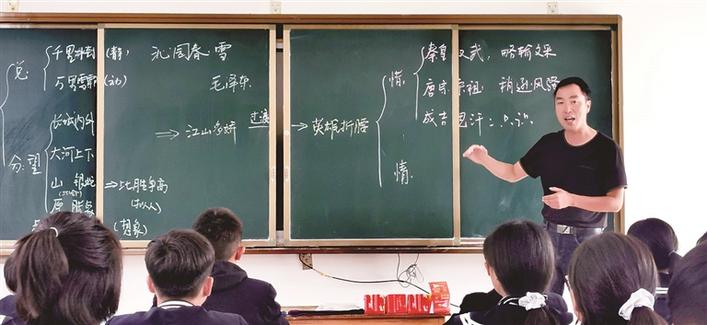 沁园春·雪
毛泽东
总:
千里冰封(静)
万里雪飘(动)
分:望
长城内外
大河上下
山 银蛇
原 蜡象
比胜争高
(拟人)
(想象)
江山多娇
过渡
英雄折腰
惜
秦皇汉武, 略输文采
唐宗宋祖, 稍逊风骚
成吉思汗:
惜